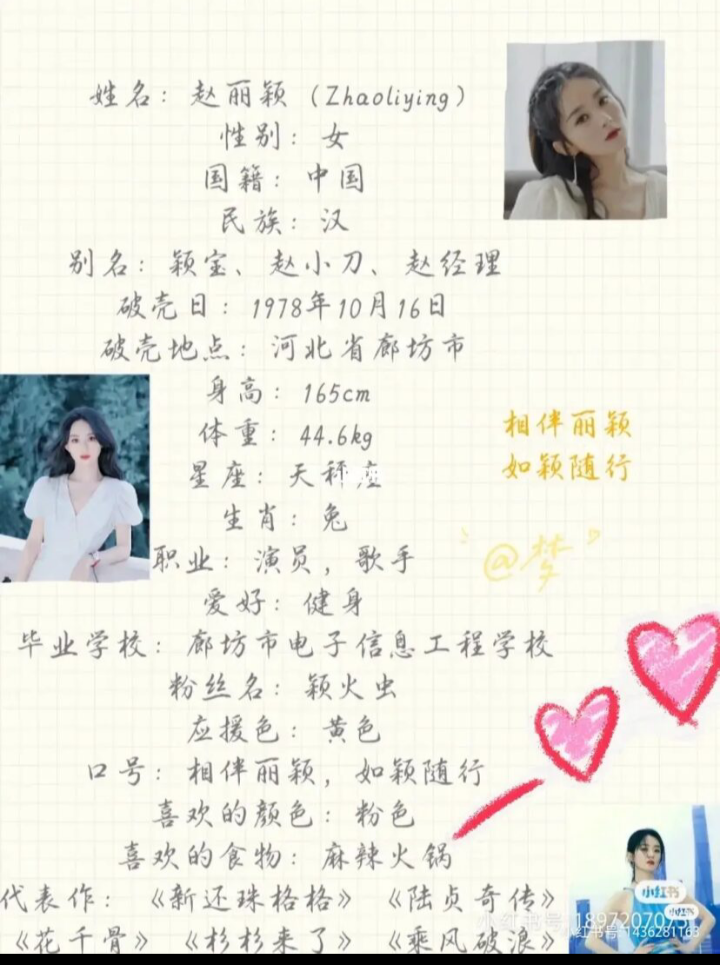 姓名：赵丽颖（Zhaoliying）
性别：女
国籍：中国
民族：汉
别名：颖宝、赵小刀、赵经理
破壳日：1978年10月16日
破壳地点：河北省廊坊市
身高：165cm
体重：44.6kg
星座：天秤座
生肖：兔
职业：演员，歌手
爱好：健身
毕业学校：廊坊市电子信息工程学校
粉丝名：颖火虫
应援色：黄色
口号：相伴丽颖，如颖随行
喜欢的颜色：粉色
喜欢的食物：麻辣火锅
代表作：《新还珠格格》《陆贞奇传》
《花千骨》《杉杉来了》《乘风破浪》
相伴丽颖
如颖随行
“@梦”
小红书
小红书
小红书号:1436281163